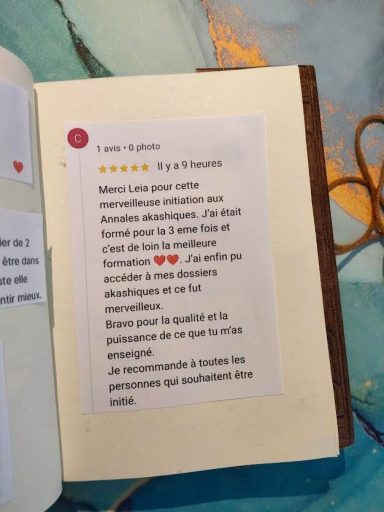 ❤
ier de 2
être dans
ute elle
ntir mieux.
C
1 avis • 0 photo
★★★★★ Il y a 9 heures
Merci Leia pour cette
merveilleuse initiation aux
Annales akashiques. J'ai était
formé pour la 3 eme fois et
c'est de loin la meilleure
formation ❤❤. J'ai enfin pu
accéder à mes dossiers
akashiques et ce fut
merveilleux.
Bravo pour la qualité et la
puissance de ce que tu m'as
enseigné.
Je recommande à toutes les
personnes qui souhaitent être
initié.